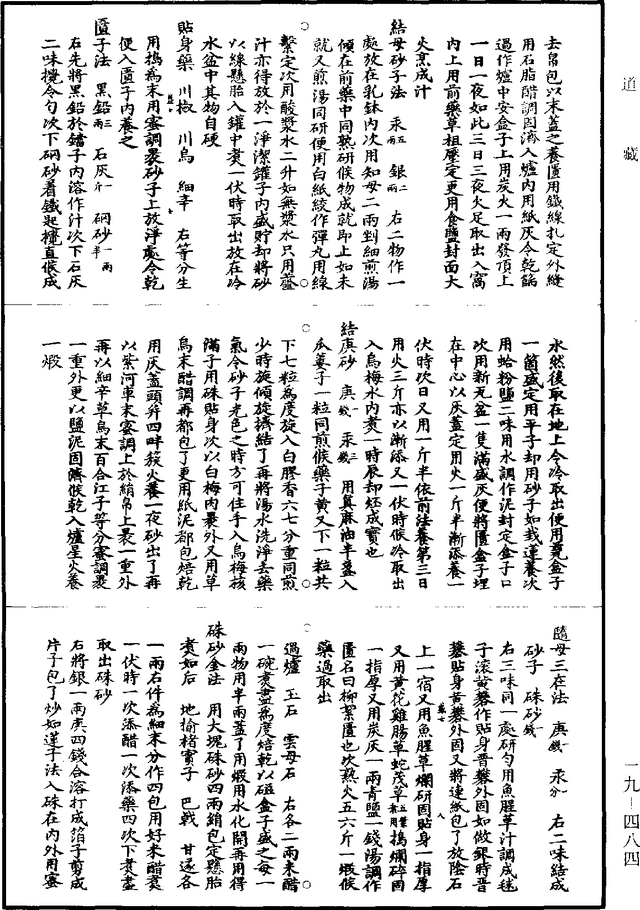 道藏
去帛包以末蓋之養匱用鐵線扎定外縫
用石脂醋調固濟入爐內用紙灰令乾餳
過作爐中安盒子上用炭火一兩發頂上
一日一夜如此三日三夜火足取出入窩
內上用前藥草杻壓定更用食鹽封面大
火烹成汁
結母砂子法 汞兩 銀兩 右二物作一
處放在乳鉢內次用知母二兩剉細煎湯
傾在前藥中同熟研候物成就即止如未
就又煎湯同研便用白紙絞作彈丸用線
繫定次用酸漿水二升如無漿水只用虀
汁亦得放於一淨潔鑵子內盛貯却將砂
以線懸胎入鑵中煑一伏時取出放在冷
水盆中其物自硬
貼身藥 川椒 川烏 細辛 右等分生
用搗為末用蜜調裹砂子上放淨處令乾
便入匱子內養之
匱子法 黑鉛三兩 石灰 硇砂一兩半
右先將黑鉛於鐺子內溶作汁次下石灰
二味攪令勻次下硇砂着鐵匙攪直候成
水然後取在地上令冷取出便用甆盒子
一箇盛定用平子却用砂子如栽蓮養次
用蛤粉鹽二味用水調作泥封定盒子口
次用新瓦盆一隻滿盛灰便將匱盒子埋
在中心以灰蓋定用火一斤半漸添養一
伏時次日又用一斤半依前法養第三日
用火三斤亦以漸添又一伏時候冷取出
入烏梅水內煑一時辰却烀成寶也
結庚砂 庚錢 汞三錢 用真麻油半盞入
瓜蔞子一粒同煎候藥子黃又下一粒共
下七粒為度旋入白膠香六七分重同煎
少時旋傾旋擠結了再將湯水洗淨去藥
氣令砂子光色之時方可住手入烏梅核
滿子用硃貼身次以白梅肉裹外又用草
烏末醋調再都包了更用紙泥都包焙乾
用灰蓋頭弇四畔簇火養一夜砂出了再
以紫河車末蜜調上於絹帛上裹一重外
再以細辛草烏末百合江子等分蜜調裹
一重外更以鹽泥固濟候乾入爐星火養
一煅
隨母三在法 庚錢 汞分 右二味結成
砂子 硃砂錢
右三味同一處研勻用魚腥草汁調成毬
子滾黃礬作貼身晉礬外固如做銀時晉
礬貼身黃礬外固又將連紙包了放陰石
上一宿又用魚腥草爛研固貼身一指厚
又用黃花雞腸草蛇茂草搗爛碎固
一指厚又用炭灰一兩青鹽一錢陽調作
匱名曰柳絮匱也次熟火五六斤一煅候
藥過取出
過爐 玉石 雲母石 右各二兩米醋
一碗煑盡為度焙乾以磁盒子盛之每一
兩物用半兩蓋了用煅用水化開再用得
硃砂金法 用大塊硃砂四兩銷包定懸胎
煑如后 地榆楮實子 巴戟 甘遂各
一兩右件為細末分作四包用好米醋煑
一伏時一次添醋一次添藥四次下煑畫
取出硃砂
右將銀一兩庚四錢合溶打成箔子剪成
片子包了炒如蓮子法入硃在內外用蜜
一九—四八四